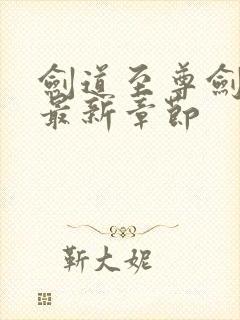 劍道至尊劍
最新章節
靳大妮